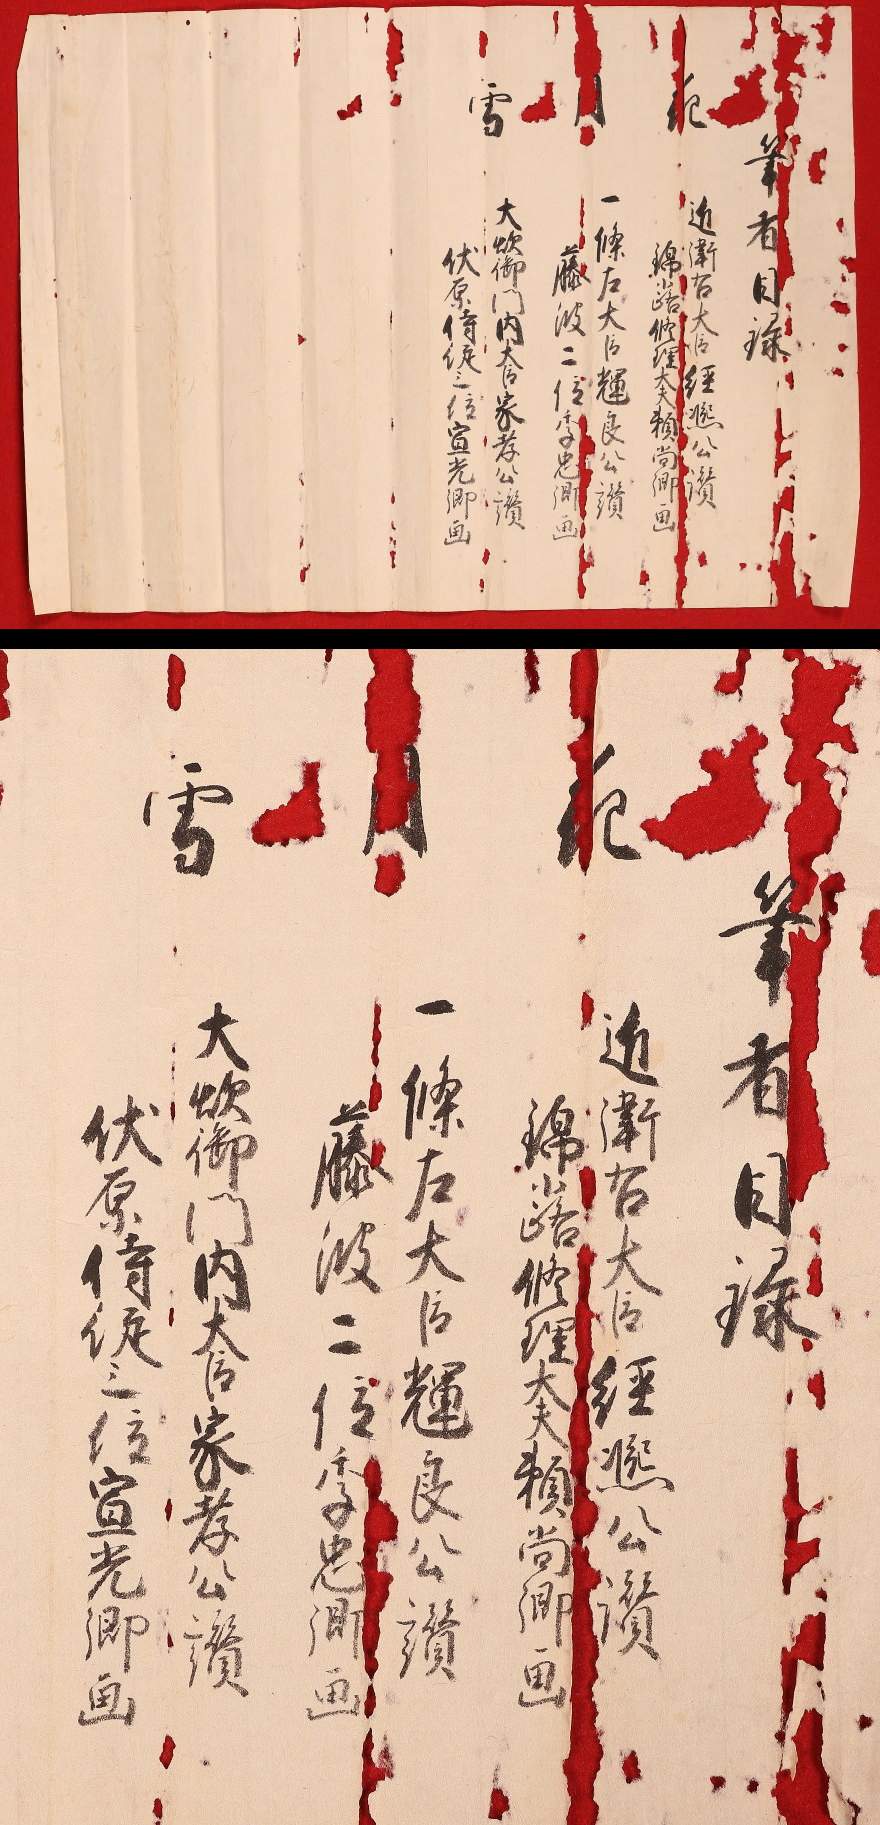 筆者目録
花
近衛右大臣経熈公讃
錦小路修理大夫頼尚卿画
月
一條左大臣輝良公讃
藤波二位季忠卿画
雪
大炊御門内大臣家孝公讃
伏原侍従三位宣光卿画
筆者目録
花
近衛右大臣経熈公讃
錦小路修理大夫頼尚卿画
月
一條左大臣輝良公讃
藤波二位季忠卿画
雪
大炊御門内大臣家孝公讃
伏原侍従三位宣光卿画